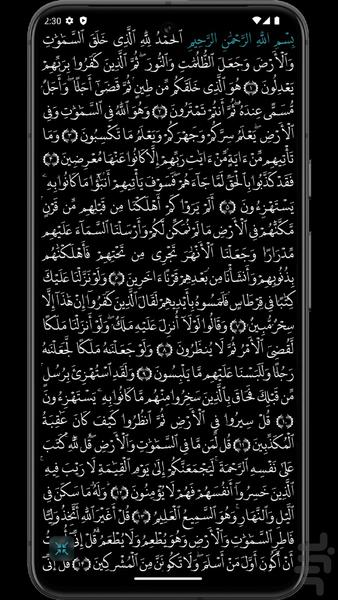 2:30
بِسْمِ اللَّهِ الرَّحْمَٰنِ الرَّحِيمِ الْحَمْدُ لِلَّهِ الَّذِي خَلَقَ السَّمَٰوَٰتِ
وَالْأَرْضَ وَجَعَلَ الظُّلُمَٰتِ وَالنُّورَ ۖ ثُمَّ الَّذِينَ كَفَرُوا بِرَبِّهِمْ
يَعْدِلُونَ ١ هُوَ الَّذِي خَلَقَكُم مِّن طِينٍ ثُمَّ قَضَىٰ أَجَلًا ۖ وَأَجَلٌ
مُّسَمًّى عِندَهُ ۖ ثُمَّ أَنتُمْ تَمْتَرُونَ ٢ وَهُوَ اللَّهُ فِي السَّمَٰوَٰتِ وَفِي
الْأَرْضِ ۖ يَعْلَمُ سِرَّكُمْ وَجَهْرَكُمْ وَيَعْلَمُ مَا تَكْسِبُونَ ٣ وَمَا
تَأْتِيهِم مِّنْ ءَايَةٍ مِّنْ ءَايَٰتِ رَبِّهِمْ إِلَّا كَانُوا عَنْهَا مُعْرِضِينَ ٤
فَقَدْ كَذَّبُوا بِالْحَقِّ لَمَّا جَاءَهُمْ ۖ فَسَوْفَ يَأْتِيهِمْ أَنۢبَٰٓؤُا مَا كَانُوا بِهِ
يَسْتَهْزِءُونَ ٥ أَلَمْ يَرَوْا كَمْ أَهْلَكْنَا مِن قَبْلِهِم مِّن قَرْنٍ
مَّكَّنَّٰهُمْ فِي الْأَرْضِ مَا لَمْ نُمَكِّن لَّكُمْ وَأَرْسَلْنَا السَّمَاءَ عَلَيْهِم
مِّدْرَارًا وَجَعَلْنَا الْأَنْهَٰرَ تَجْرِي مِن تَحْتِهِمْ فَأَهْلَكْنَٰهُم
بِذُنُوبِهِمْ وَأَنشَأْنَا مِنۢ بَعْدِهِمْ قَرْنًا ءَاخَرِينَ ٦ وَلَوْ نَزَّلْنَا عَلَيْكَ
كِتَٰبًا فِي قِرْطَاسٍ فَلَمَسُوهُ بِأَيْدِيهِمْ لَقَالَ الَّذِينَ كَفَرُوا إِنْ هَٰذَا إِلَّا
سِحْرٌ مُّبِينٌ ٧ وَقَالُوا لَوْلَا أُنزِلَ عَلَيْهِ مَلَكٌ ۖ وَلَوْ أَنزَلْنَا مَلَكًا
لَّقُضِيَ الْأَمْرُ ثُمَّ لَا يُنظَرُونَ ٨ وَلَوْ جَعَلْنَٰهُ مَلَكًا لَّجَعَلْنَٰهُ
رَجُلًا وَلَلَبَسْنَا عَلَيْهِم مَّا يَلْبِسُونَ ٩ وَلَقَدِ اسْتُهْزِئَ بِرُسُلٍ
مِّن قَبْلِكَ فَحَاقَ بِالَّذِينَ سَخِرُوا مِنْهُم مَّا كَانُوا بِهِ يَسْتَهْزِءُونَ
١٠ قُلْ سِيرُوا فِي الْأَرْضِ ثُمَّ انظُرُوا كَيْفَ كَانَ عَٰقِبَةُ
الْمُكَذِّبِينَ ١١ قُل لِّمَن مَّا فِي السَّمَٰوَٰتِ وَالْأَرْضِ ۖ قُل لِّلَّهِ ۚ كَتَبَ
عَلَىٰ نَفْسِهِ الرَّحْمَةَ ۚ لَيَجْمَعَنَّكُمْ إِلَىٰ يَوْمِ الْقِيَٰمَةِ لَا رَيْبَ فِيهِ ۚ
الَّذِينَ خَسِرُوا أَنفُسَهُمْ فَهُمْ لَا يُؤْمِنُونَ ١٢ وَلَهُ مَا سَكَنَ فِي
الَّيْلِ وَالنَّهَارِ ۚ وَهُوَ السَّمِيعُ الْعَلِيمُ ١٣ قُلْ أَغَيْرَ اللَّهِ أَتَّخِذُ وَلِيًّا
فَاطِرِ السَّمَٰوَٰتِ وَالْأَرْضِ وَهُوَ يُطْعِمُ وَلَا يُطْعَمُ ۗ قُلْ إِنِّي أُمِرْتُ
أَنْ أَكُونَ أَوَّلَ مَنْ أَسْلَمَ ۖ وَلَا تَكُونَنَّ مِنَ الْمُشْرِكِينَ ١٤ قُلْ إِنِّي